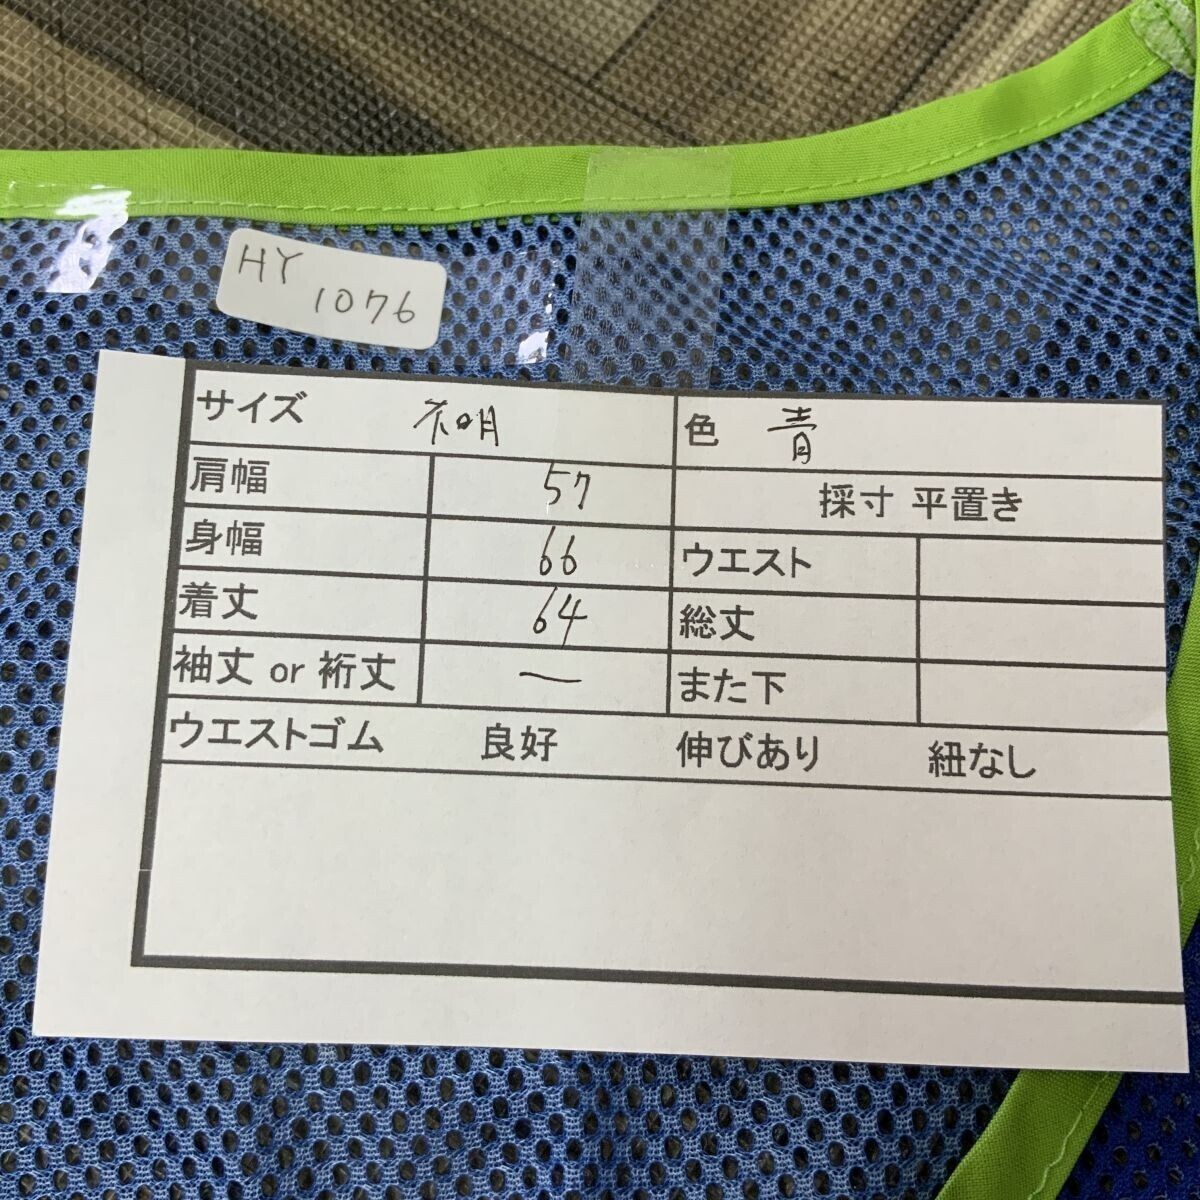 HY
1076
サイズ 不明 色 青
肩幅 57 採寸 平置き
身幅 66 ウエスト
着丈 64 総丈
袖丈 or 裄丈 ー また下
ウエストゴム 良好 伸びあり 紐なし